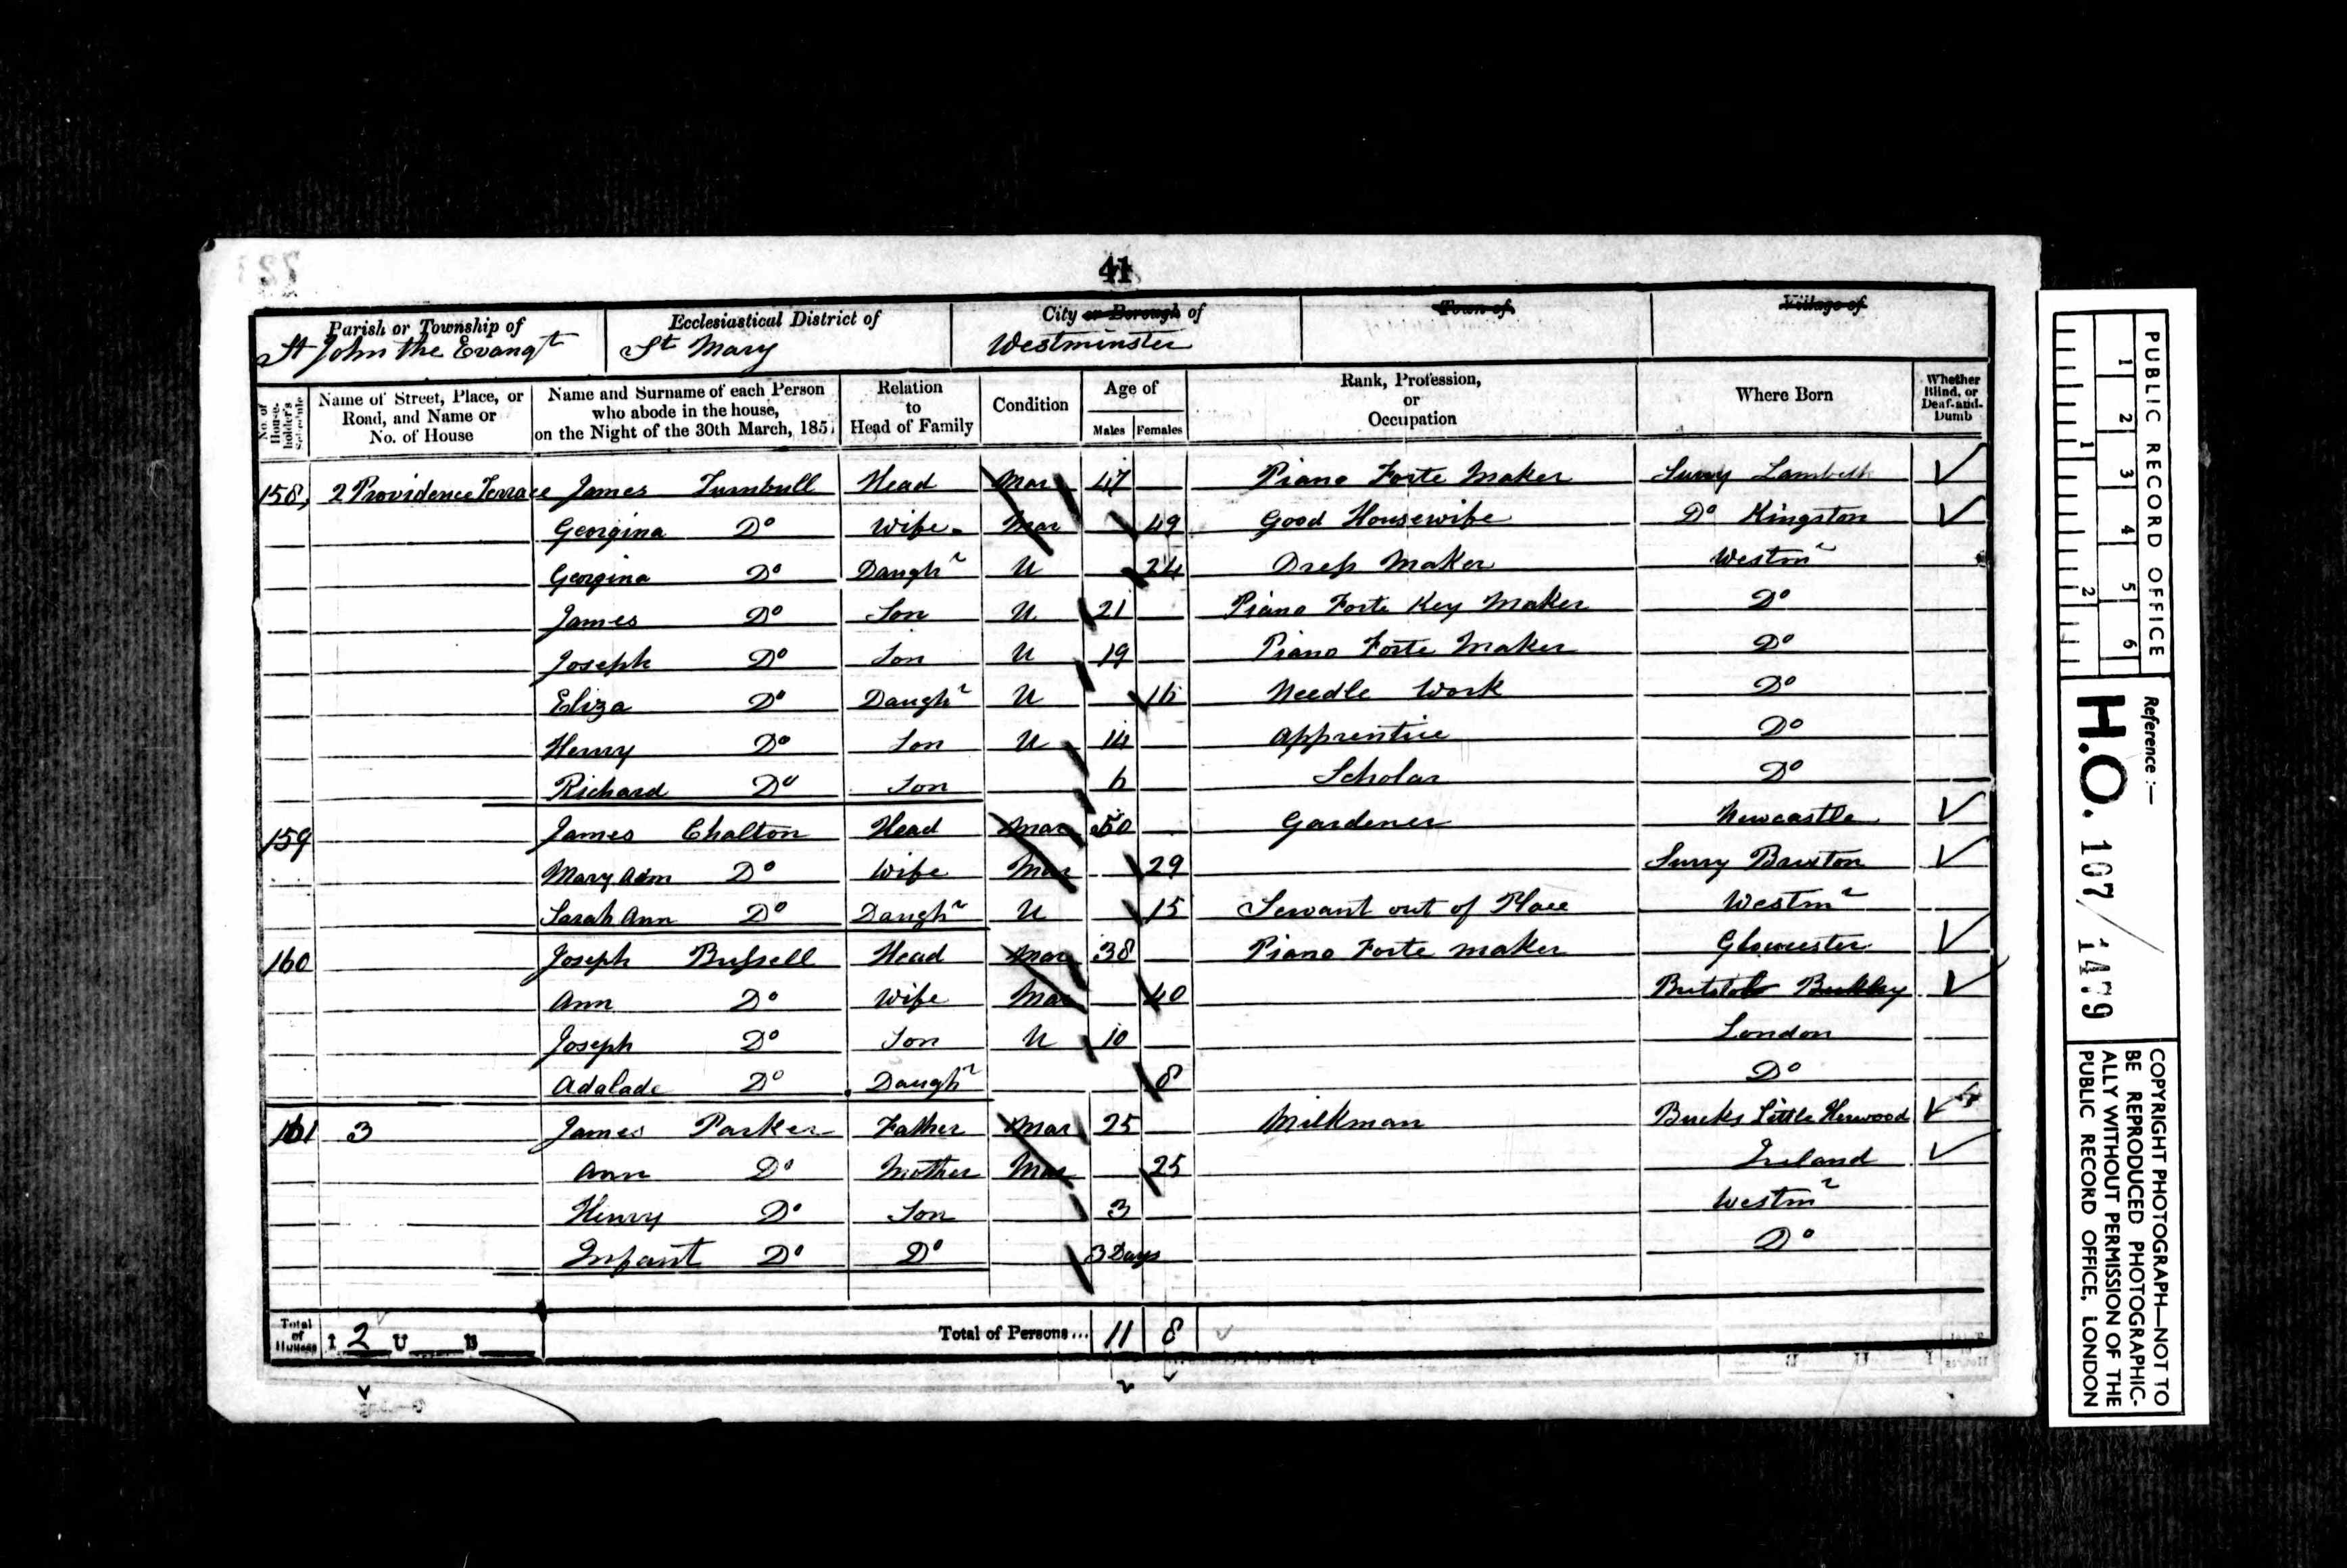 41
Parish or Township of
St John the Evangt
Ecclesiastical District of
St Mary
City or Borough of
Westminster
Town of
Village of
No. of House-holder's Schedule
Name of Street, Place, or Road, and Name or No. of House
Name and Surname of each Person who abode in the house, on the Night of the 30th March, 1851
Relation to Head of Family
Condition
Age of
Males Females
Rank, Profession, or Occupation
Where Born
Whether Blind, or Deaf-and-Dumb
158, 2 Providence Terrace James Turnbull Head Mar 47 Piano Forte Maker Surry Lambeth
Georgina Do Wife Mar 49 Good Housewife Do Kingston
Georgina Do Daughr U 24 Dress Maker Westmr
James Do Son U 21 Piano Forte Key Maker Do
Joseph Do Son U 19 Piano Forte Maker Do
Eliza Do Daughr U 16 Needle Work Do
Henry Do Son U 14 Apprentice Do
Richard Do Son 6 Scholar Do
159 James Chalton Head Mar 50 Gardener Newcastle
Mary Ann Do Wife Mar 29 Surry Brixton
Sarah Ann Do Daughr U 15 Servant out of Place Westmr
160 Joseph Bussell Head Mar 38 Piano Forte maker Gloucester
Ann Do Wife Mar 40 Bristol
Joseph Do Son U 10 London
Adalade Do Daughr 8 Do
161 3 James Parker Father Mar 25 Milkman Bucks Little Horwood
Ann Do Mother Mar 25 Ireland
Henry Do Son 3 Westmr
Infant Do Do 3 Days Do
Total of Houses I 2 U B
Total of Persons... 11 8
PUBLIC RECORD OFFICE
1 2 3 4 5 6
1 2
Reference :—
H.O. 107/1479
COPYRIGHT PHOTOGRAPH—NOT TO
BE REPRODUCED PHOTOGRAPHIC-
ALLY WITHOUT PERMISSION OF THE
PUBLIC RECORD OFFICE, LONDON